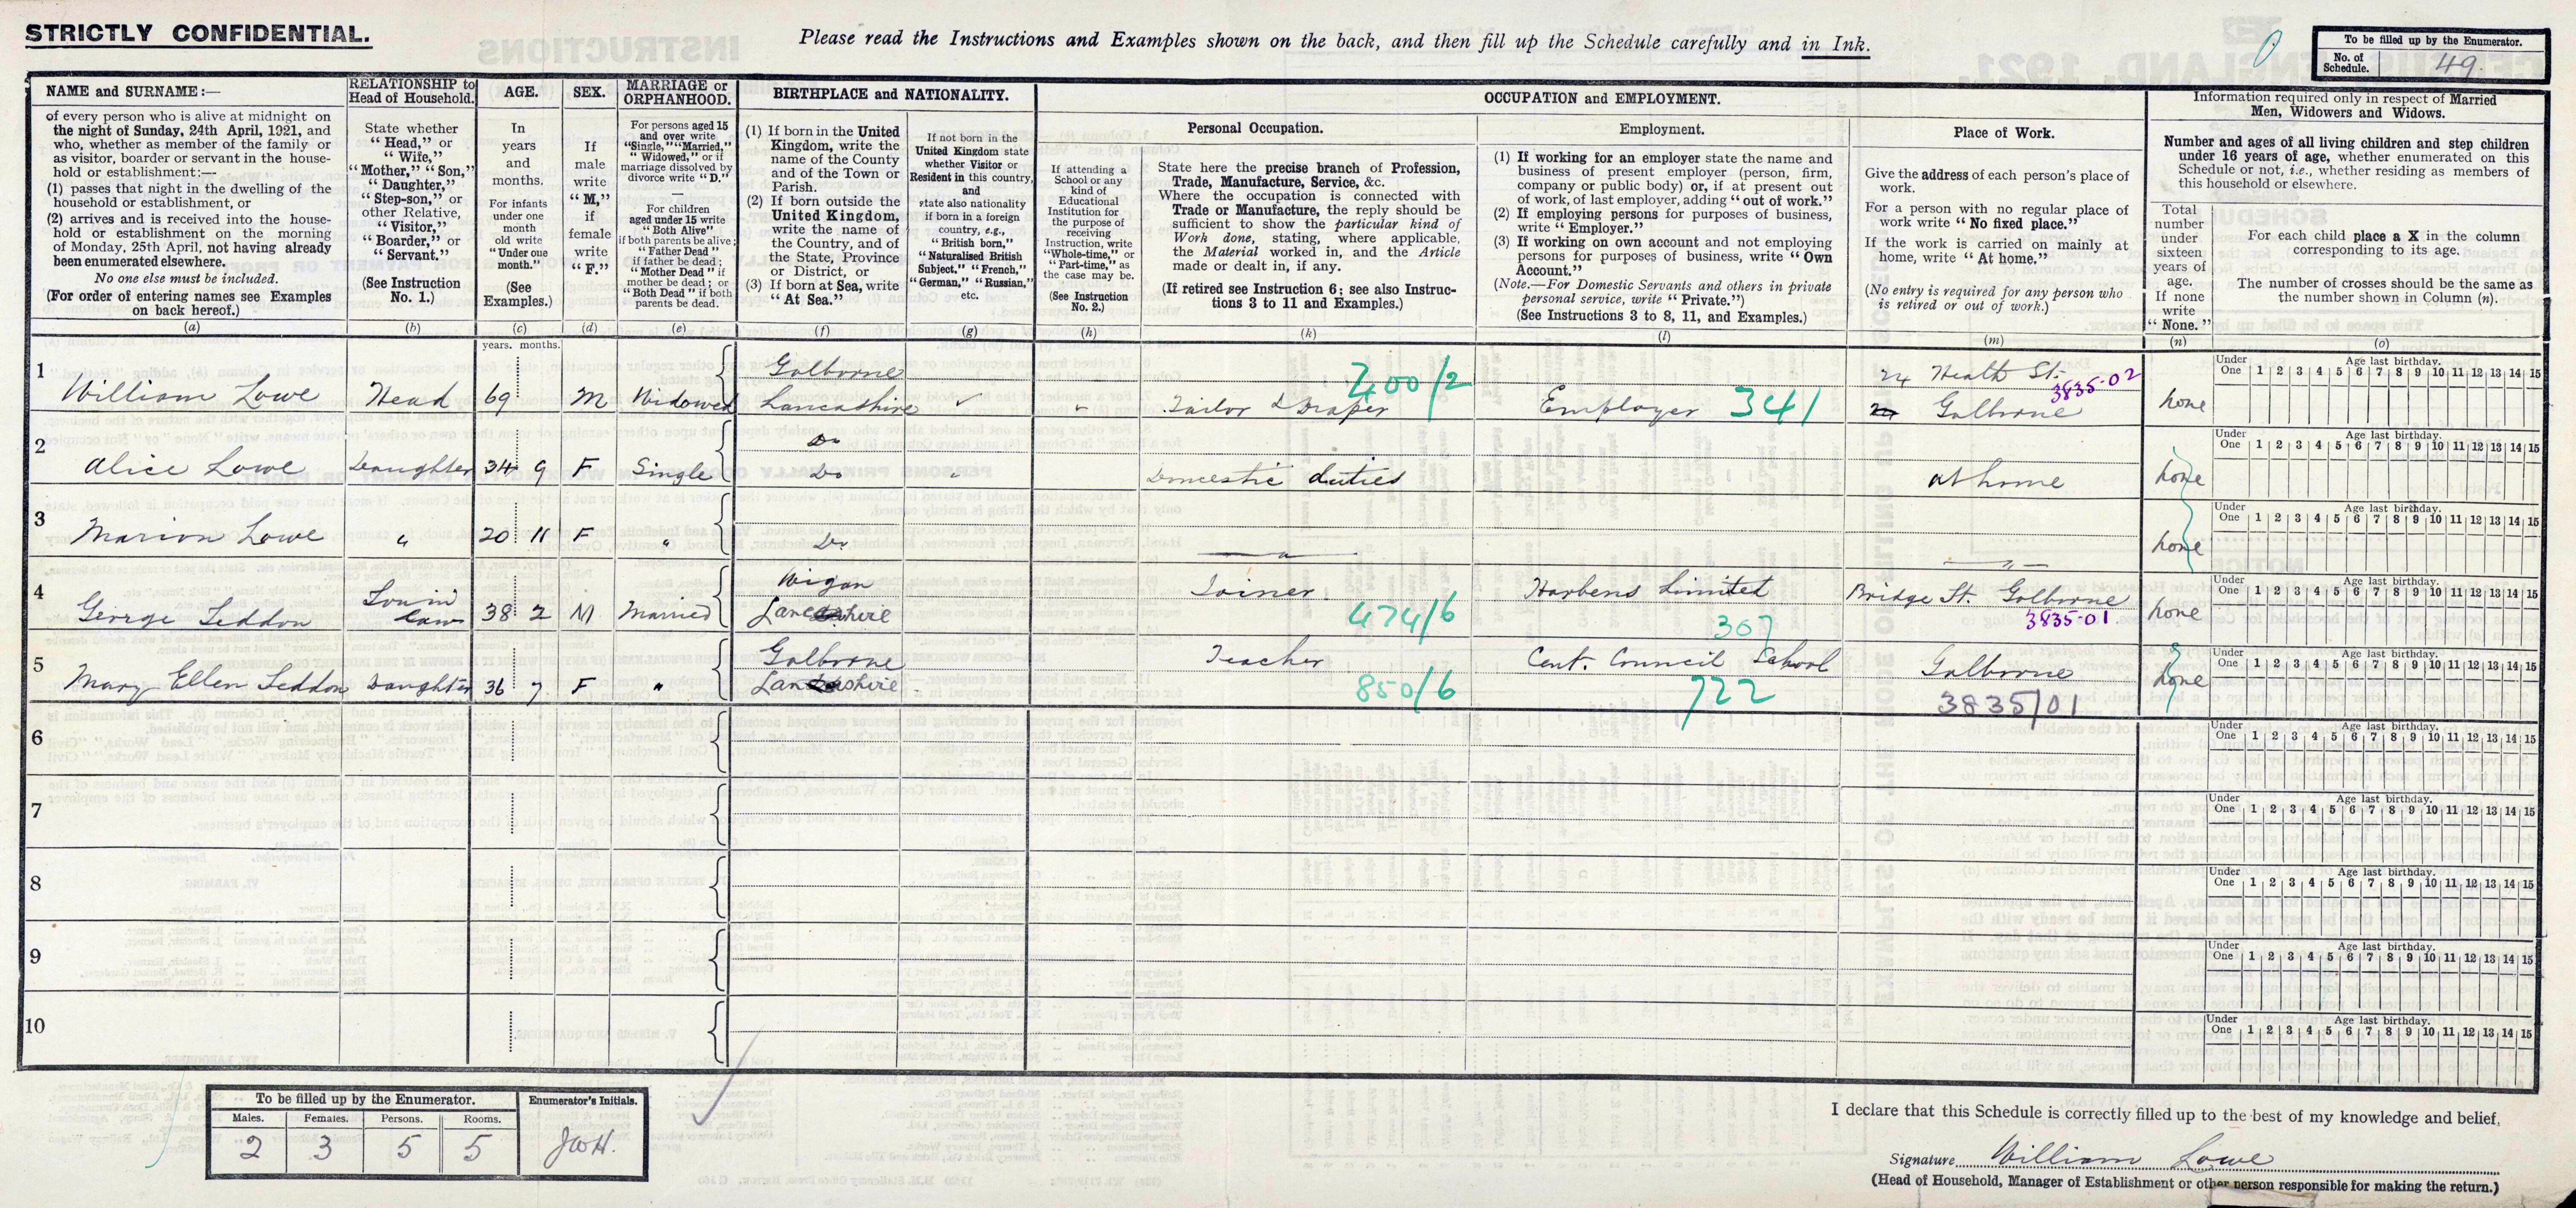 STRICTLY CONFIDENTIAL.
Please read the Instructions and Examples shown on the back, and then fill up the Schedule carefully and in Ink.
To be filled up by the Enumerator.
No. of Schedule. 49.
NAME and SURNAME:—
of every person who is alive at midnight on
the night of Sunday, 24th April, 1921, and
who, whether as member of the family or
as visitor, boarder or servant in the house-
hold or establishment:—
(1) passes that night in the dwelling of the
household or establishment, or
(2) arrives and is received into the house-
hold or establishment on the morning
of Monday, 25th April, not having already
been enumerated elsewhere.
No one else must be included.
(For order of entering names see Examples
on back hereof.)
(a)
RELATIONSHIP to
Head of Household.
State whether
"Head," or
"Wife,"
"Mother," "Son,"
"Daughter,"
"Step-son," or
other Relative,
"Visitor,"
"Boarder," or
"Servant."
(See Instruction
No. 1.)
(b)
AGE.
In
years
and
months.
For infants
under one
month
old write
"Under one
month."
(See
Examples.)
(c)
SEX.
If
male
write
"M,"
if
female
write
"F."
(d)
MARRIAGE or
ORPHANHOOD.
For persons aged 15
and over write
"Single," "Married,"
"Widowed," or if
marriage dissolved by
divorce write "D."
—
For children
aged under 15 write
"Both Alive"
if both parents be alive;
"Father Dead"
if father be dead;
"Mother Dead" if
mother be dead; or
"Both Dead" if both
parents be dead.
(e)
BIRTHPLACE and NATIONALITY.
(1) If born in the United
Kingdom, write the
name of the County
and of the Town or
Parish.
(2) If born outside the
United Kingdom,
write the name of
the Country, and of
the State, Province
or District, or
(3) If born at Sea, write
"At Sea."
(f)
If not born in the
United Kingdom state
whether Visitor or
Resident in this country,
and
state also nationality
if born in a foreign
country, e.g.,
"British born,"
"Naturalised British
Subject," "French,"
"German," "Russian,"
etc.
(g)
OCCUPATION and EMPLOYMENT.
If attending a
School or any
kind of
Educational
Institution for
the purpose of
receiving
Instruction, write
"Whole-time," or
"Part-time," as
the case may be.
(See Instruction
No. 2.)
(h)
Personal Occupation.
State here the precise branch of Profession,
Trade, Manufacture, Service, &c.
Where the occupation is connected with
Trade or Manufacture, the reply should be
sufficient to show the particular kind of
Work done, stating, where applicable,
the Material worked in, and the Article
made or dealt in, if any.
(If retired see Instruction 6; see also Instruc-
tions 3 to 11 and Examples.)
(k)
Employment.
(1) If working for an employer state the name and
business of present employer (person, firm,
company or public body) or, if at present out
of work, of last employer, adding "out of work."
(2) If employing persons for purposes of business,
write "Employer."
(3) If working on own account and not employing
persons for purposes of business, write "Own
Account."
(Note.—For Domestic Servants and others in private
personal service, write "Private.")
(See Instructions 3 to 8, 11, and Examples.)
(l)
Place of Work.
Give the address of each person's place of
work.
For a person with no regular place of
work write "No fixed place."
If the work is carried on mainly at
home, write "At home."
(No entry is required for any person who
is retired or out of work.)
(m)
Information required only in respect of Married
Men, Widowers and Widows.
Number and ages of all living children and step children
under 16 years of age, whether enumerated on this
Schedule or not, i.e., whether residing as members of
this household or elsewhere.
Total
number
under
sixteen
years of
age.
If none
write
"None."
(n)
For each child place a X in the column
corresponding to its age.
The number of crosses should be the same as
the number shown in Column (n).
(o)
years. months.
1 William Lowe Head 69 M Widowed Golborne Lancashire Tailor & Draper 400/2 Employer 341 24 Heath St. Golborne 3835-02 none
Under One Age last birthday. 1 2 3 4 5 6 7 8 9 10 11 12 13 14 15
2 Alice Lowe Daughter 34 9 F Single Do Do Domestic duties at home none
Under One Age last birthday. 1 2 3 4 5 6 7 8 9 10 11 12 13 14 15
3 Marion Lowe " 20 11 F " Do — " — — " — none
Under One Age last birthday. 1 2 3 4 5 6 7 8 9 10 11 12 13 14 15
4 George Seddon Son in law 38 2 M Married Wigan Lancashire Joiner 474/6 Harbens Limited 307 Bridge St. Golborne 3835-01 none
Under One Age last birthday. 1 2 3 4 5 6 7 8 9 10 11 12 13 14 15
5 Mary Ellen Seddon Daughter 36 7 F " Golborne Lancashire Teacher 850/6 Cent. Council School 722 Golborne 3835/01 none
Under One Age last birthday. 1 2 3 4 5 6 7 8 9 10 11 12 13 14 15
6
Under One Age last birthday. 1 2 3 4 5 6 7 8 9 10 11 12 13 14 15
7
Under One Age last birthday. 1 2 3 4 5 6 7 8 9 10 11 12 13 14 15
8
Under One Age last birthday. 1 2 3 4 5 6 7 8 9 10 11 12 13 14 15
9
Under One Age last birthday. 1 2 3 4 5 6 7 8 9 10 11 12 13 14 15
10
Under One Age last birthday. 1 2 3 4 5 6 7 8 9 10 11 12 13 14 15
To be filled up by the Enumerator.
Males. Females. Persons. Rooms.
2 3 5 5
Enumerator's Initials.
JWH.
I declare that this Schedule is correctly filled up to the best of my knowledge and belief,
Signature William Lowe
(Head of Household, Manager of Establishment or other person responsible for making the return.)